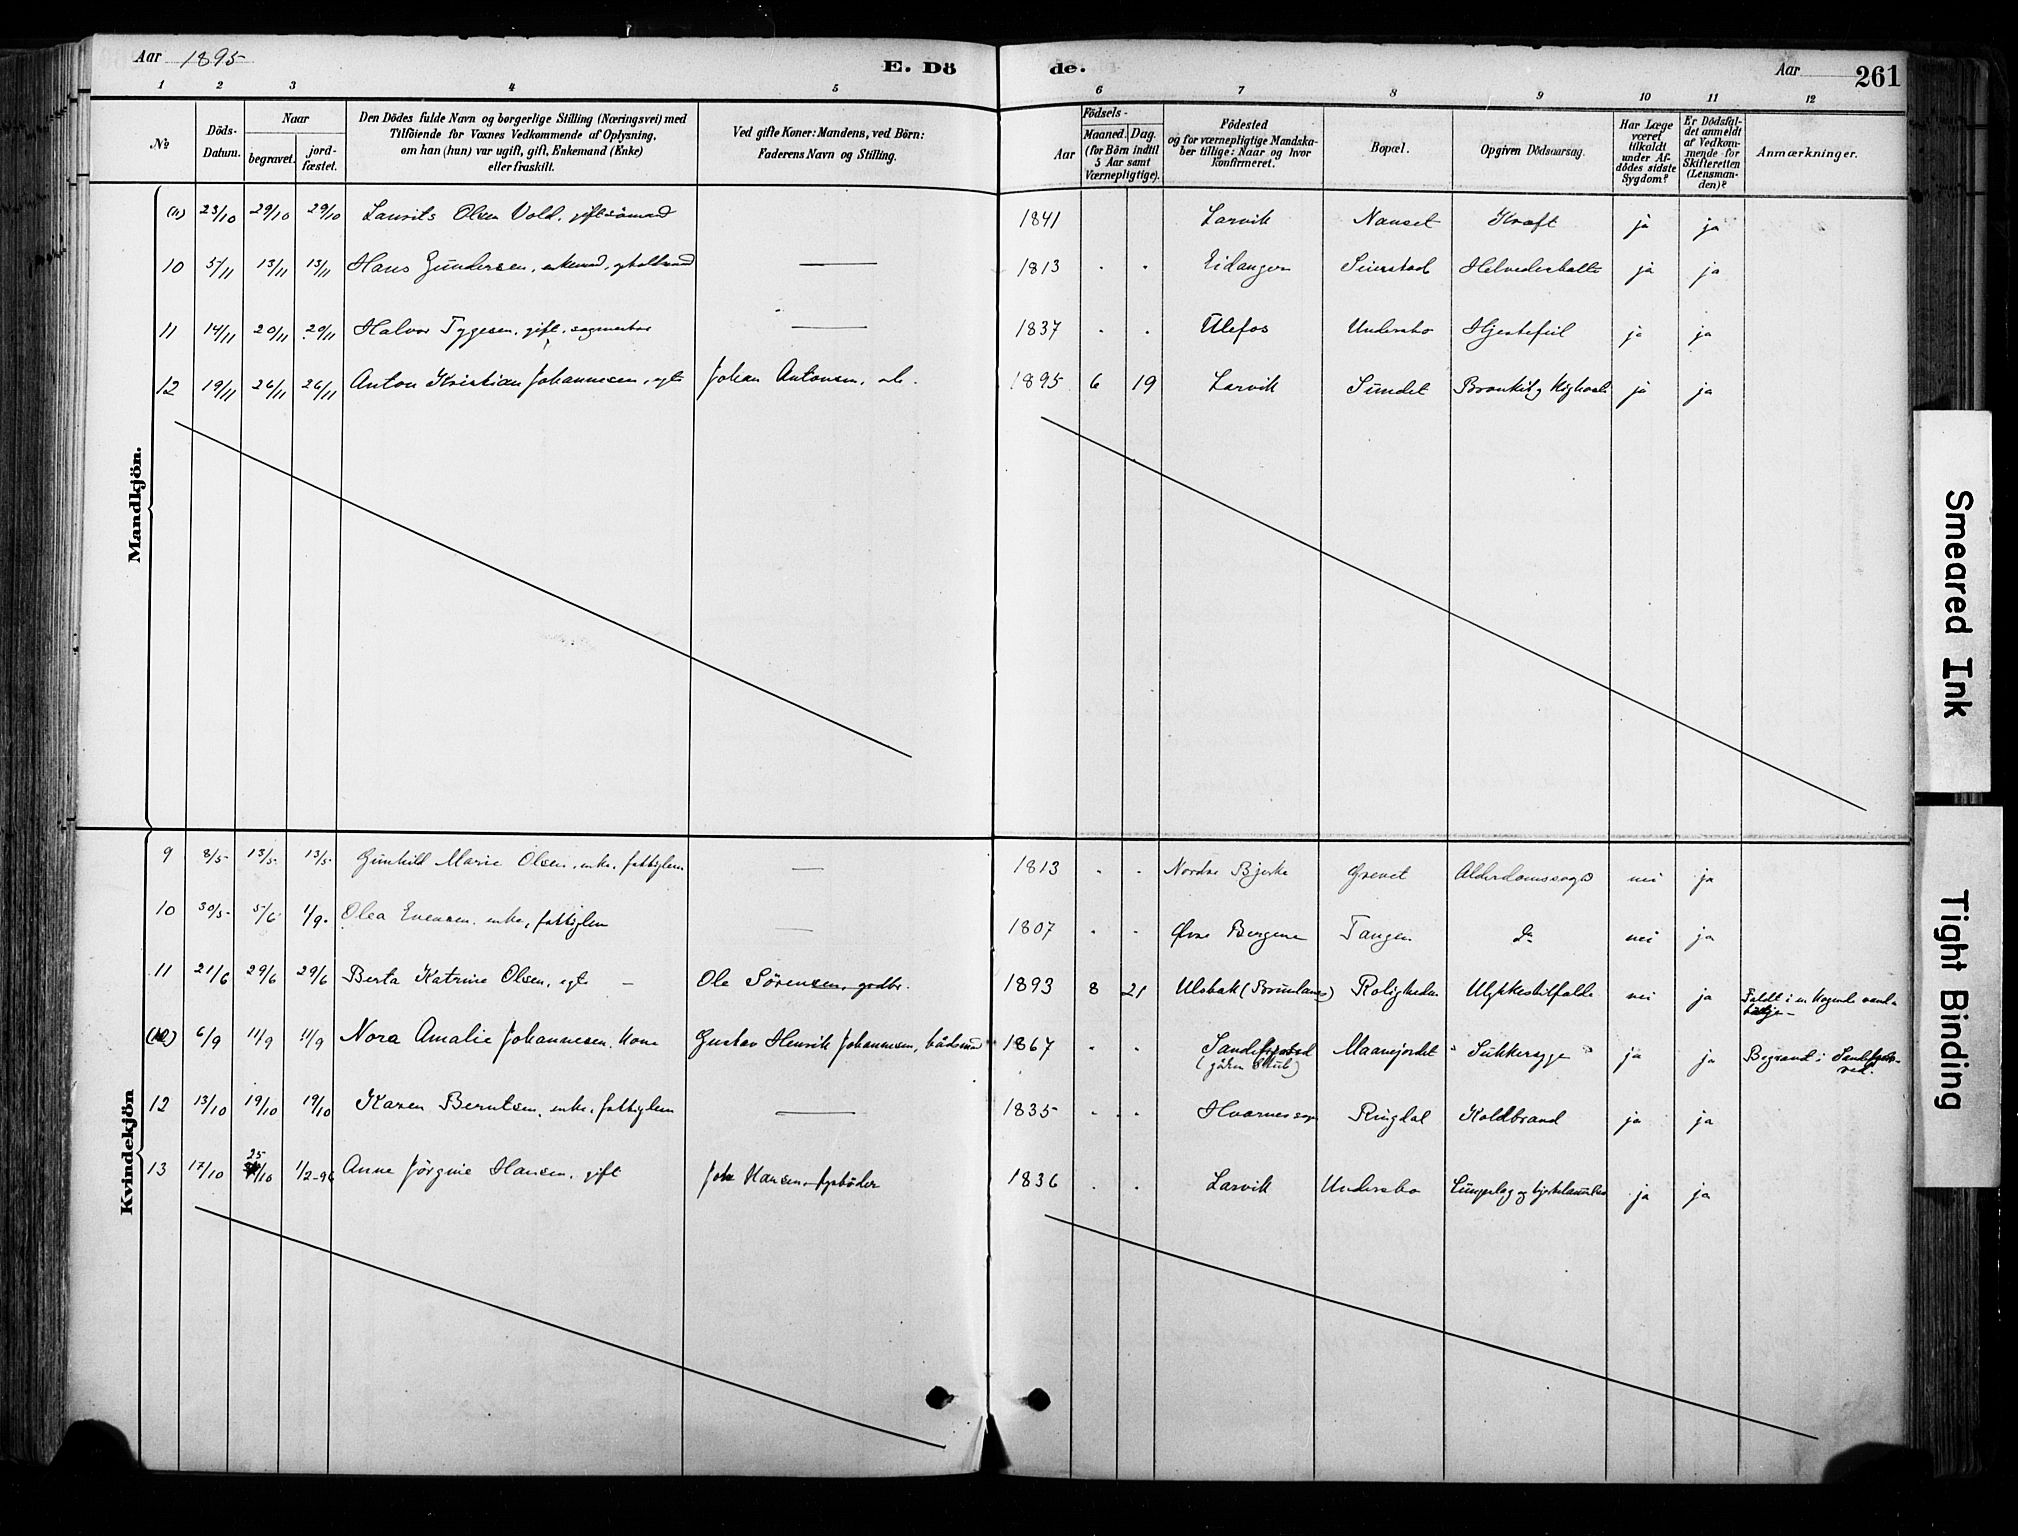 Aar 1895 E. Dö de. Aar 261
1 2 3 4 5 6 7 8 9 10 11 12
№ Döds-Datum. Naar begravet. jord-fæstet. Den Dödes fulde Navn og borgerlige Stilling (Næringsvei) med Tilföiende for Voxnes Vedkommende af Oplysning, om han (hun) var ugift, gift, Enkemand (Enke) eller fraskilt. Ved gifte Koner: Mandens, ved Börn: Faderens Navn og Stilling. Födsels- Aar Maaned. Dag. (for Börn indtil 5 Aar samt Værnepligtige). Födested og for værnepligtige Mandska-ber tillige: Naar og hvor Konfirmeret. Bopæl. Opgiven Dödsaarsag. Har Læge været tilkaldt under Af-dödes sidste Sygdom? Er Dödsfal-det anmeldt af Vedkom-mende for Skifteretten (Lensman-den)? Anmærkninger.
Mandkjön.
23/10 29/10 29/10 Laurits Olsen Vold, gift sömad 1841 Larvik Nanset Kræft ja ja
10 5/11 13/11 13/11 Hans Gundersen, — 1813 " " Eidanger ja ja
11 14/11 20/11 20/11 Halvor Tygesen, gift, — 1837 " " Ulefos Undersbo Hjertefeil ja ja
12 19/11 26/11 26/11 Anton Kristian Johannesen, egte Johan Antonsen, 1895 6 19 Larvik Sundet Bronkit og Kighoste ja ja
Kvindekjön
9 8/5 13/5 13/5 Gunhild Marie Olsen, enke, fattiglem — 1813 " " Nordre Bjerke Grevet Alderdomssvag nei ja
10 30/5 5/6 1/9 Olea Evensen, enke, fattiglem — 1807 " " Øvre Bergene Tangen Do nei ja
11 21/6 29/6 29/6 Berta Katrine Olsen, egte — Ole Sörensen, 1893 8 21 Ulsbak (Brunlanes) Roligheden Ulykkestilfælde nei ja Faldt i en kogende vand-
balje —
6/9 11/9 11/9 Nora Amalie Johannesen, kone Gustav Henrik Johannesen, 1867 " " Sandefjord Maanejordet Sukkersyge ja ja Begravet i Sandefjord.
12 13/10 19/10 19/10 Karen Berntsen, enke, fattiglem — 1835 " " Hvarnes sogn Ringdal Koldbrand ja ja
13 17/10 25/10 1/2-96 Anne Jörgine Hansen, gift Joh. Hansen, fyrböder 1836 " " Larvik Undersbo ja ja
Smeared Ink
Tight Binding